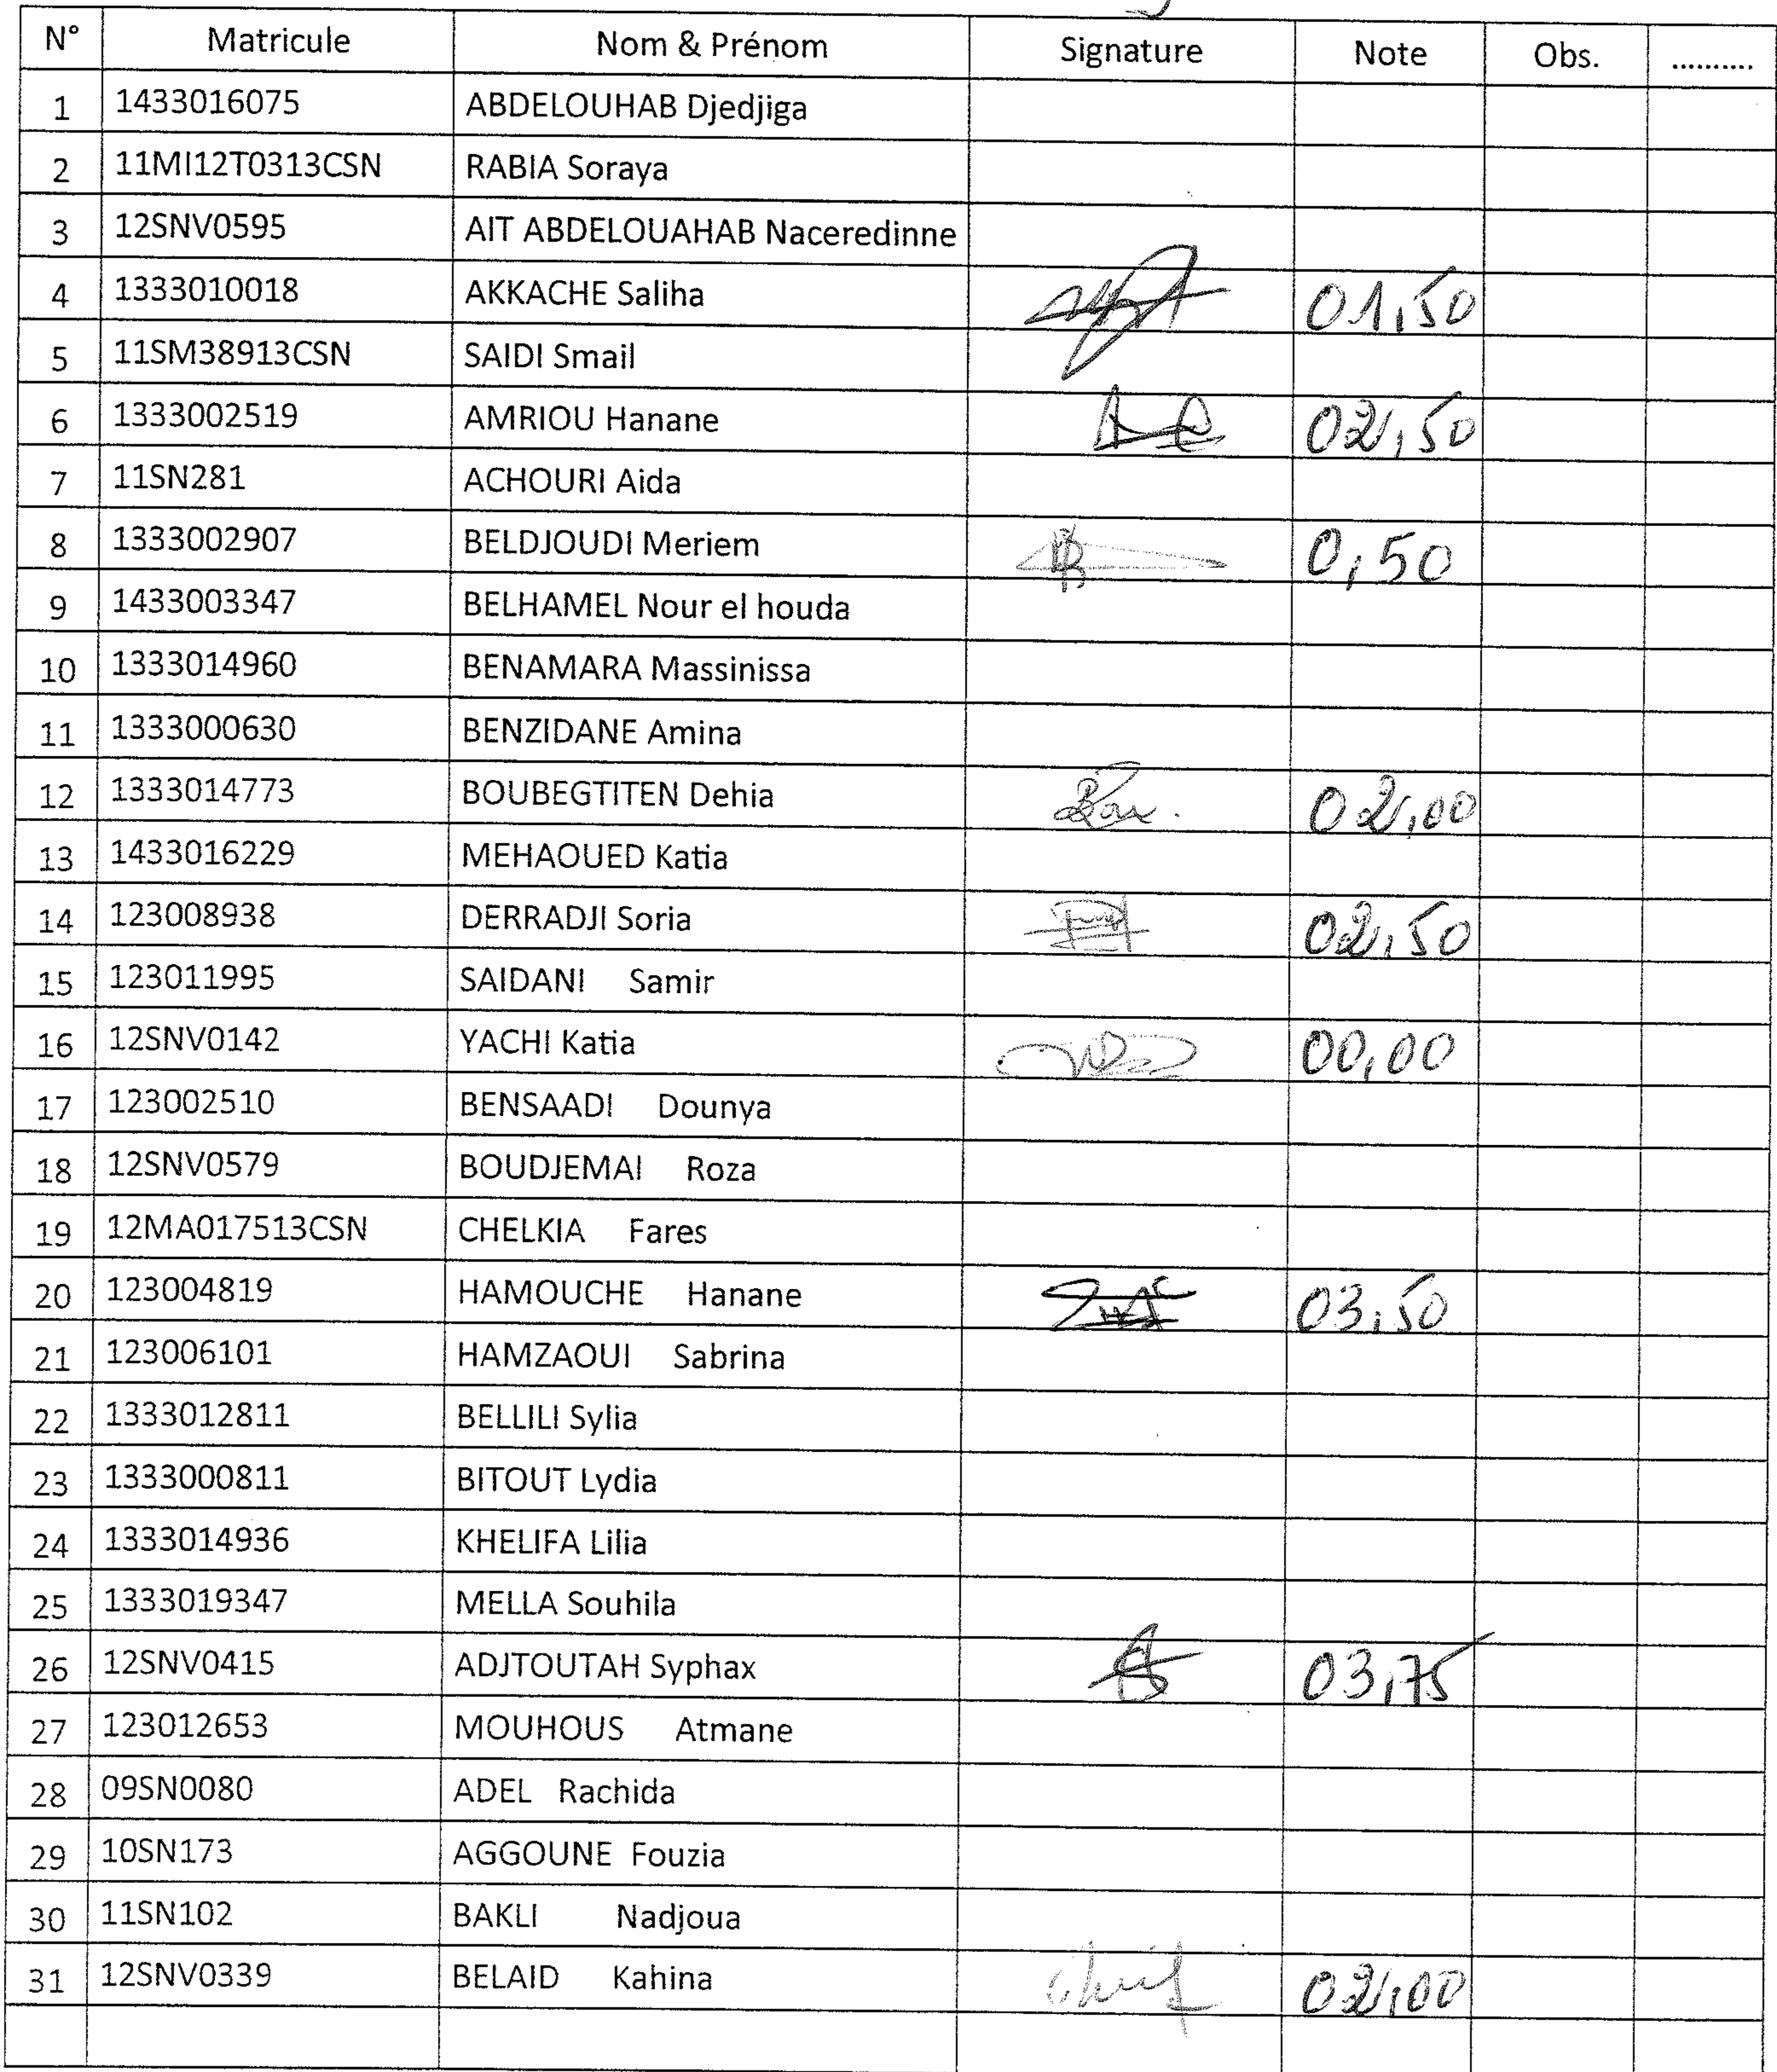 N° Matricule Nom & Prénom Signature Note Obs. ..........
1 1433016075 ABDELOUHAB Djedjiga
2 11MI12T0313CSN RABIA Soraya
3 12SNV0595 AIT ABDELOUAHAB Naceredinne
4 1333010018 AKKACHE Saliha 01,50
5 11SM38913CSN SAIDI Smail
6 1333002519 AMRIOU Hanane 02,50
7 11SN281 ACHOURI Aida
8 1333002907 BELDJOUDI Meriem 0,50
9 1433003347 BELHAMEL Nour el houda
10 1333014960 BENAMARA Massinissa
11 1333000630 BENZIDANE Amina
12 1333014773 BOUBEGTITEN Dehia 02,00
13 1433016229 MEHAOUED Katia
14 123008938 DERRADJI Soria 02,50
15 123011995 SAIDANI Samir
16 12SNV0142 YACHI Katia 00,00
17 123002510 BENSAADI Dounya
18 12SNV0579 BOUDJEMAI Roza
19 12MA017513CSN CHELKIA Fares
20 123004819 HAMOUCHE Hanane 03,50
21 123006101 HAMZAOUI Sabrina
22 1333012811 BELLILI Sylia
23 1333000811 BITOUT Lydia
24 1333014936 KHELIFA Lilia
25 1333019347 MELLA Souhila
26 12SNV0415 ADJTOUTAH Syphax 03,75
27 123012653 MOUHOUS Atmane
28 09SN0080 ADEL Rachida
29 10SN173 AGGOUNE Fouzia
30 11SN102 BAKLI Nadjoua
31 12SNV0339 BELAID Kahina 02,00